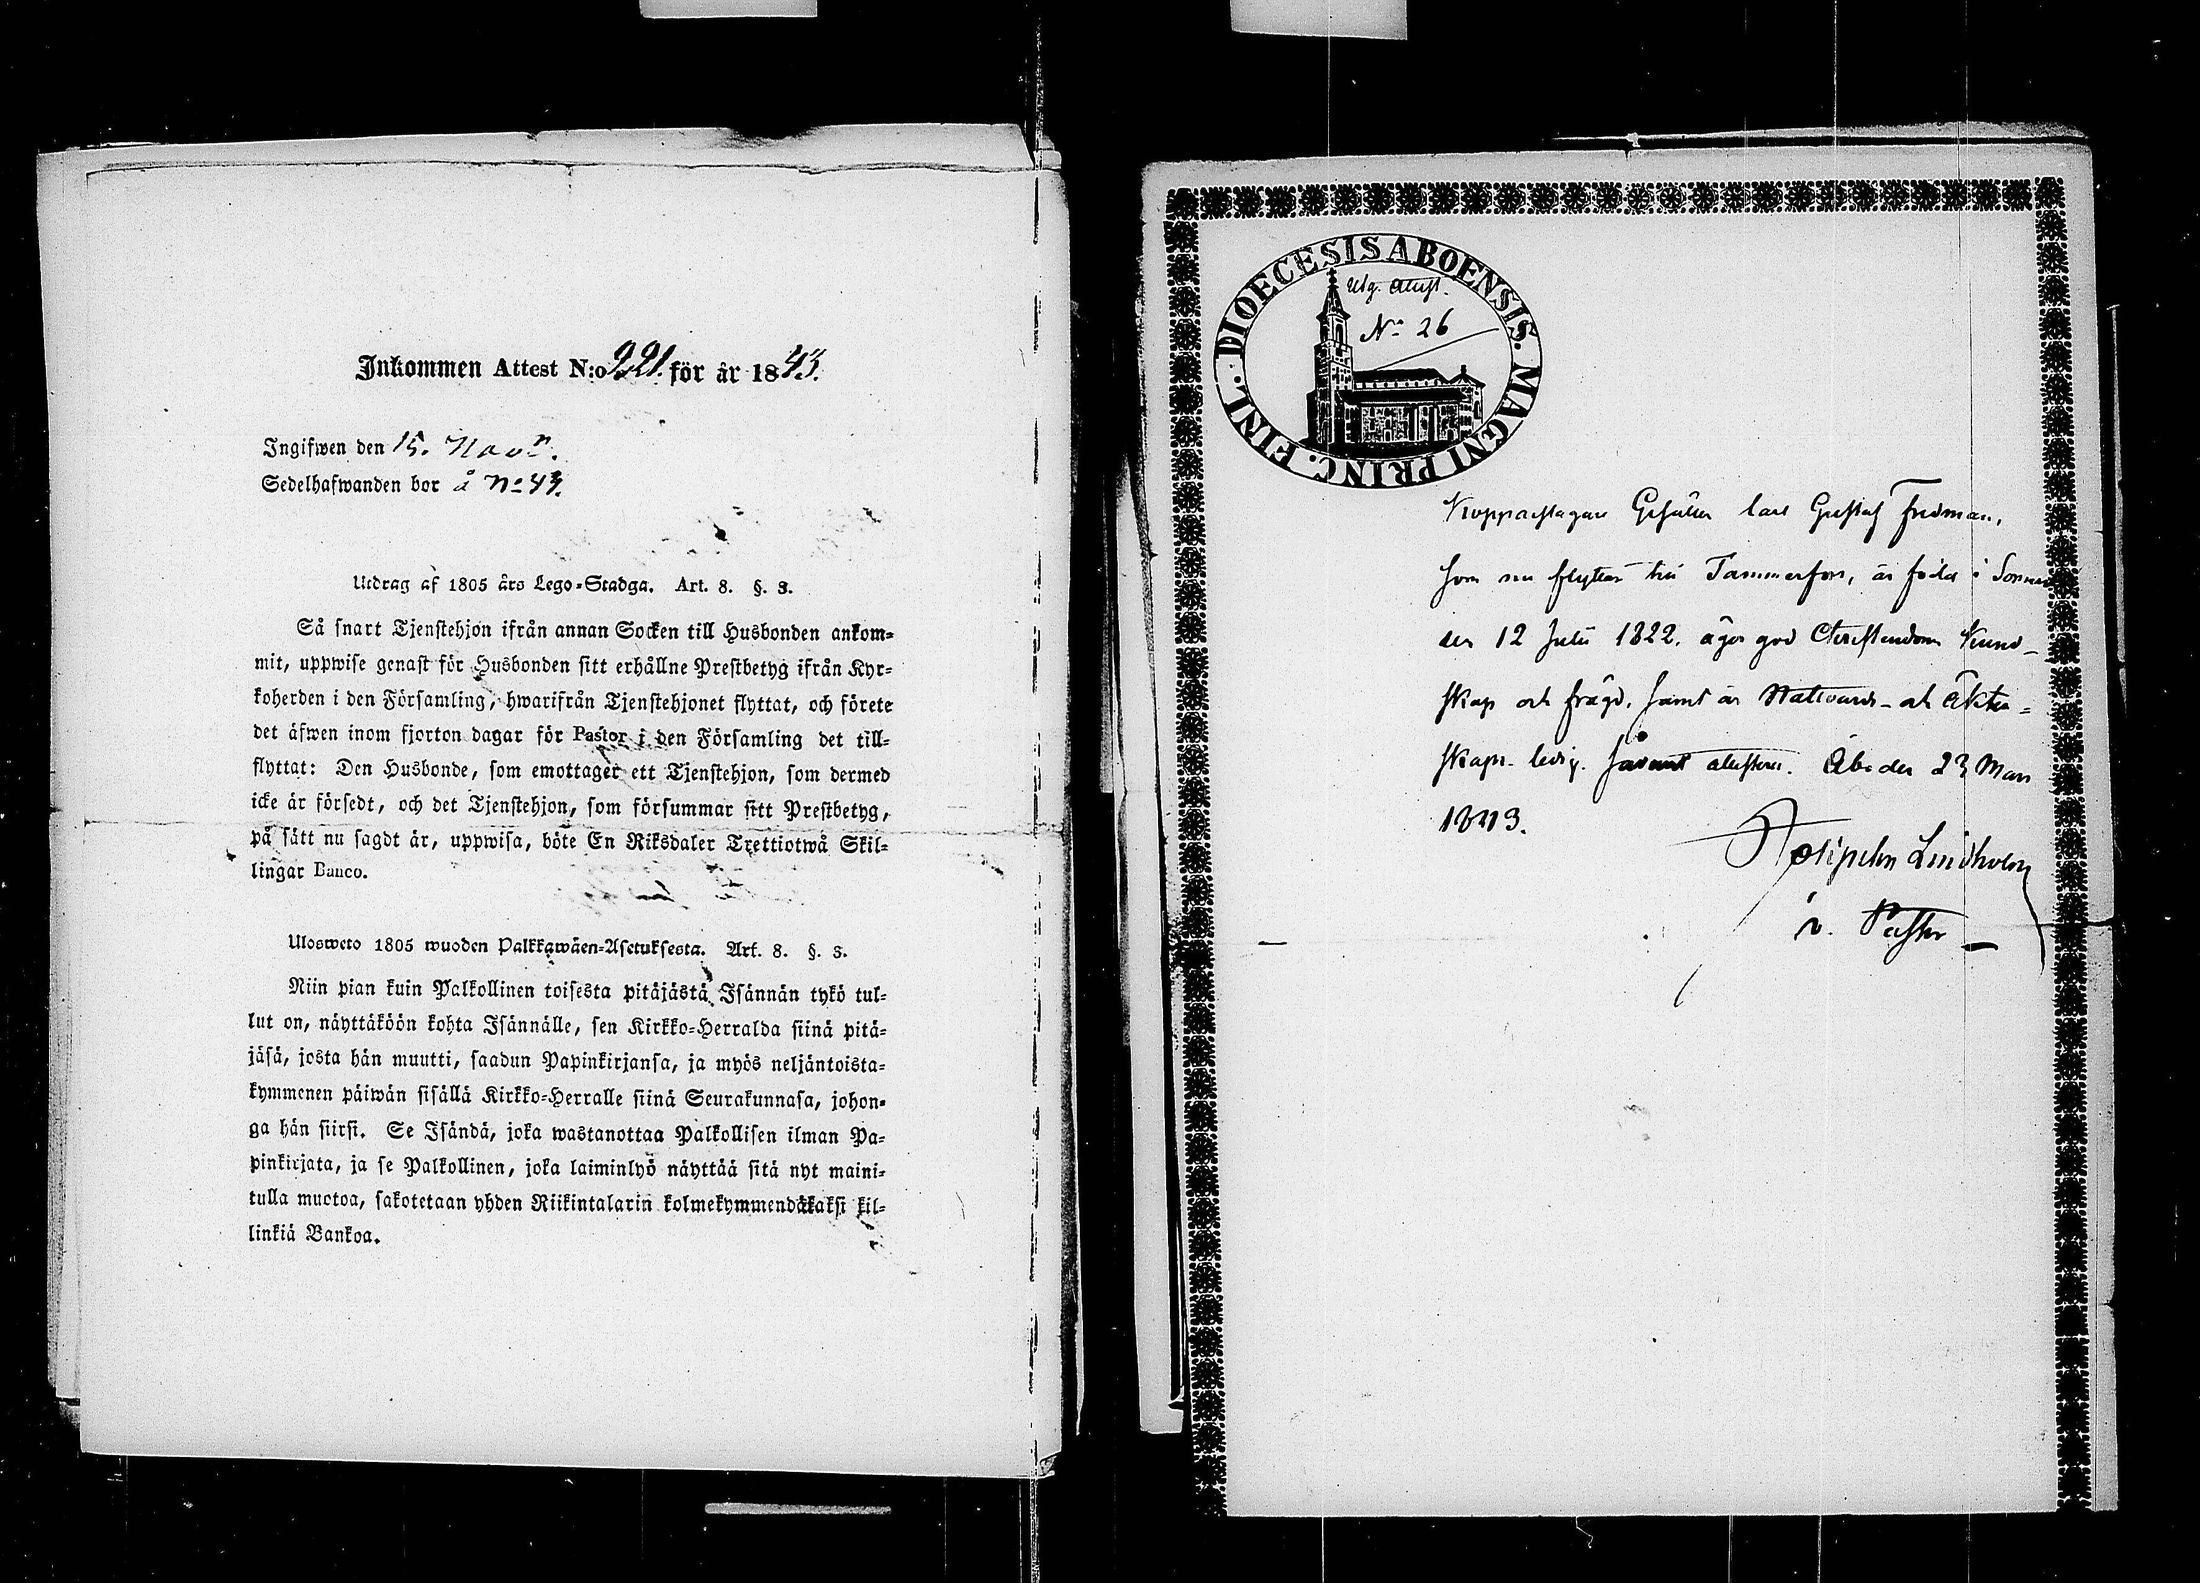 Inkommen Attest N:o 221. för år 1843.
Ingifwen den 15. Novr.
Sedelhafwanden bor å No 43.
Utdrag af 1805 års Lego-Stadga. Art. 8. §. 3.
Så snart Tjenstehjon ifrån annan Socken till Husbonden ankom-
mit, uppwise genast för Husbonden sitt erhållne Prestbetyg ifrån Kyr-
koherden i den Församling, hwarifrån Tjenstehjonet flyttat, och förete
det äfwen inom fjorton dagar för Pastor i den Församling det till-
flyttat: Den Husbonde, som emottager ett Tjenstehjon, som dermed
icke är försedt, och det Tjenstehjon, som försummar sitt Prestbetyg,
på sätt nu sagdt är, uppwisa, böte En Riksdaler Trettiotwå Skil-
lingar Banco.
Ulosweto 1805 wuoden Palkkawäen-Asetuksesta. Art. 8. §. 3.
Niin pian kuin Palkollinen toisesta pitäjästä Isännän tykö tul-
lut on, näyttäköön kohta Isännälle, sen Kirkko-Herralda siinä pitä-
jäsä, josta hän muutti, saadun Papinkirjansa, ja myös neljäntoista-
kymmenen päiwän sisällä Kirkko-Herralle siinä Seurakunnasa, johon-
ga hän siirsi. Se Isändä, joka wastanottaa Palkollisen ilman Pa-
pinkirjata, ja se Palkollinen, joka laiminlyö näyttää sitä nyt maini-
tulla muotoa, sakotetaan yhden Riikintalarin kolmekymmendäkaksi kil-
linkiä Bankoa.
DIOECESIS ABOENSIS. MAGNI PRINC. FINL.
Utg. Attest.
No 26
Kopparslagare Gesällen Carl Gustaf Fridman,
som nu flyttar till Tammerfors, är född i
den 12 Julii 1822. äger god Christendoms Kund-
skap och frägd, samt är Nattvards- och Äkten-
skaps- ledig. Åbo den 23 Mars
1843.
Lindholm
v. Pastor